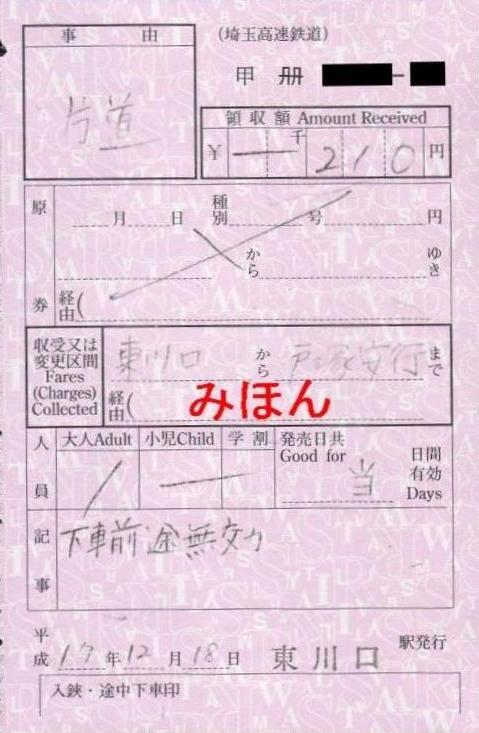 事由
(埼玉高速鉄道)
片道
甲 册
領収額 Amount Received
千
¥ 210円
原券
月 日 種別 号 円
から ゆき
経由(
収受又は変更区間
Fares (Charges) Collected
東川口 から 戸塚安行 まで
経由(
みほん
人員
大人Adult 小児Child 学割 発売日共 Good for 日間有効 Days
/ — 当
記事
下車前途無効
平成17年12月18日 東川口 駅発行
入鋏・途中下車印